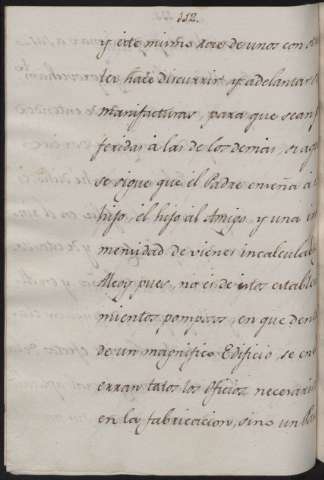 112.
y este mismo roze de unos con
les hace discurrir, y adelantar
manufacturas, para que sean
feridas á las de los demas, si a
se sigue que el Padre enseña á
hijo, el hijo al Amigo, y una in
mensidad de vienes incalculab
Alcoy pues, no es de estos establ
mientos pomposos, en que den
de un magnifico Edificio, se en
erran tatos los oficios necesari
en la fabricacion, sino un